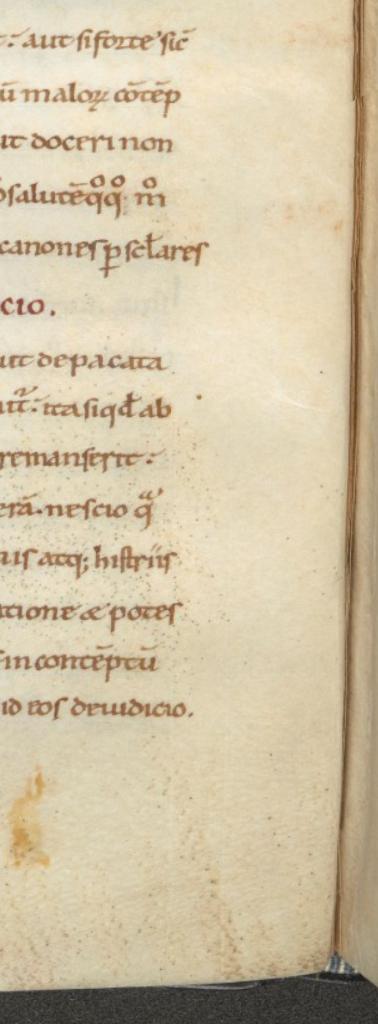 : aut si forte sic̄
ū maloꝝ cōtēp
ut doceri non
salutē qͦqͦ m̊
canones p̱ sclares
cio.
ut depacata
ut̃: ita siqđ ab
remanserit:
erā. nescio qᷓ
us atq; histriis
atione & potes
in contēptū
id eos deiudicio.